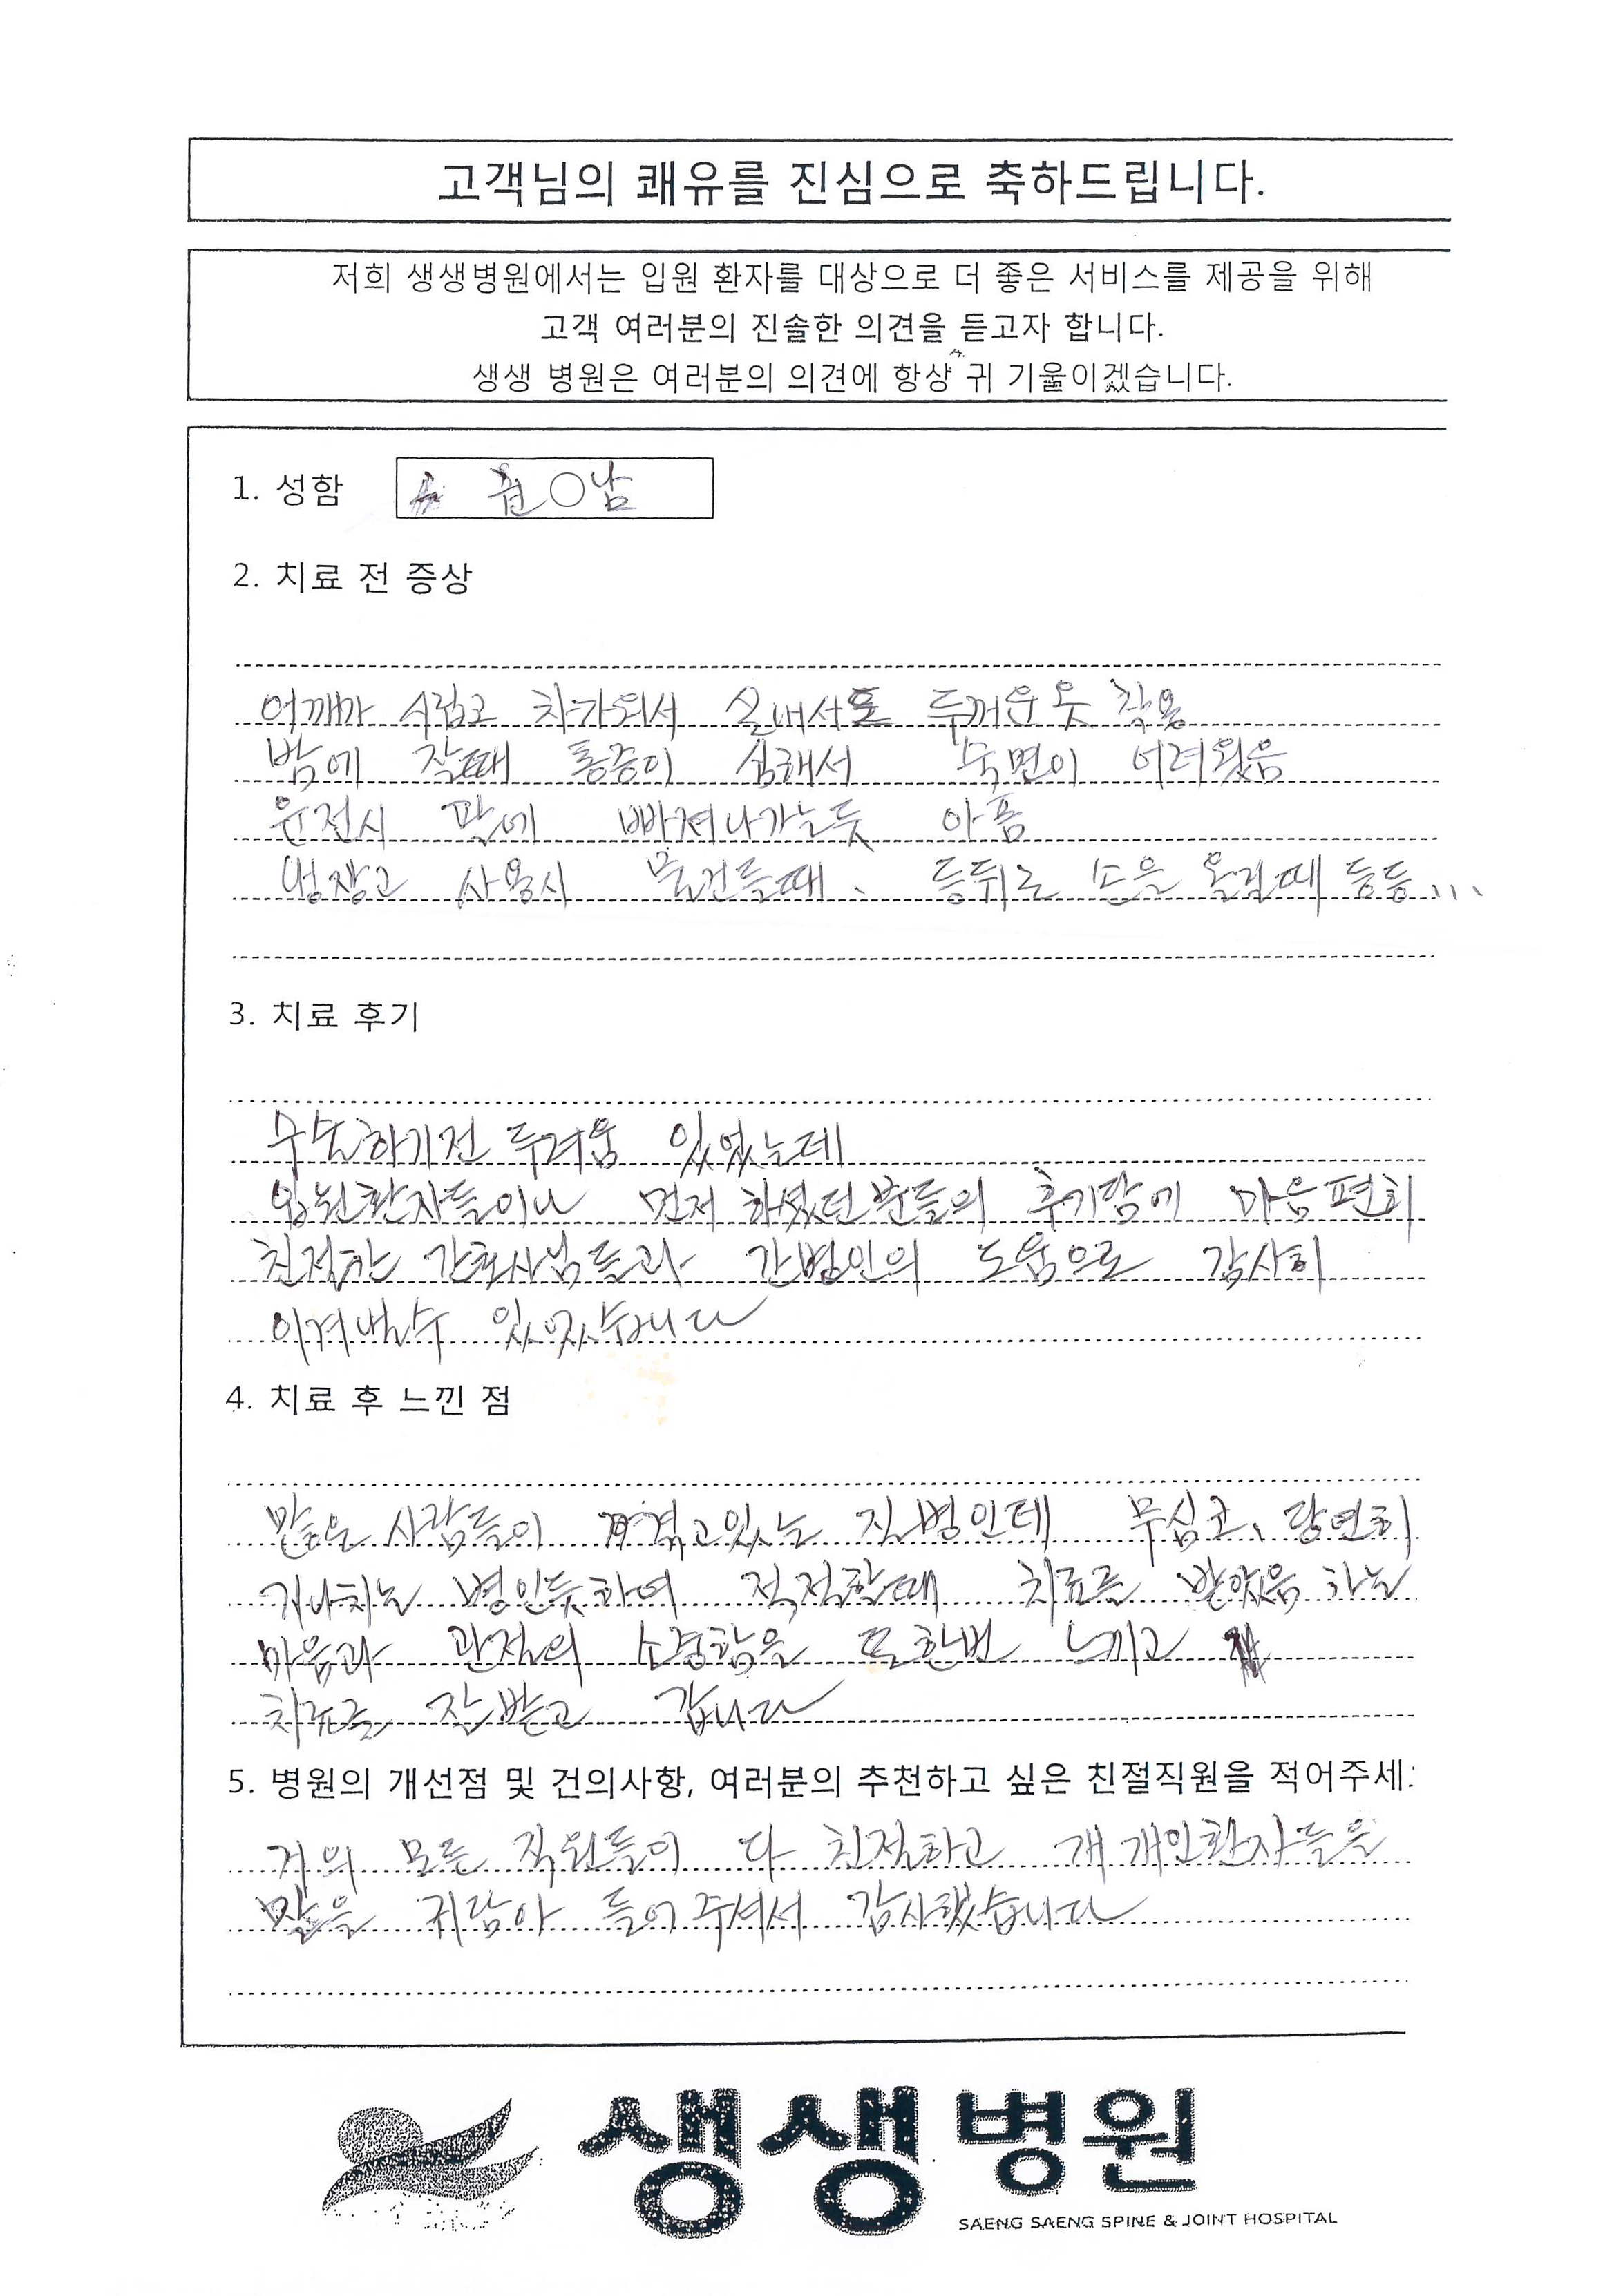 고객님의 쾌유를 진심으로 축하드립니다.
저희 생생병원에서는 입원 환자를 대상으로 더 좋은 서비스를 제공을 위해
고객 여러분의 진솔한 의견을 듣고자 합니다.
생생 병원은 여러분의 의견에 항상 귀 기울이겠습니다.
1. 성함 권○남
2. 치료 전 증상
어깨가 시렵고 차가워서 실내서도 두꺼운 옷 착용
밤에 잘때 통증이 심해서 숙면이 어려웠음
운전시 팔에 빠져나가는듯 아픔
냉장고 사용시 물건들때、 등뒤로 손을 올릴때 등등...
3. 치료 후기
수술하기전 두려움 있었는데
입원환자들이나 먼저 하셨던분들의 후기담에 마음편히
친절한 간호사님들과 간병인의 도움으로 감사히
이겨낼수 있었습니다
4. 치료 후 느낀 점
많은 사람들이 겪고있는 질병인데 무심코、당연히
지나치는 병인듯하여 적절할때 치료를 받았음 하는
마음과 관절의 소중함을 또한번 느끼고
치료를 잘받고 갑니다
5. 병원의 개선점 및 건의사항, 여러분의 추천하고 싶은 친절직원을 적어주세
거의 모든 직원들이 다 친절하고 개개인환자들을
말을 귀담아 들어주셔서 감사했습니다
생생병원
SAENG SAENG SPINE & JOINT HOSPITAL